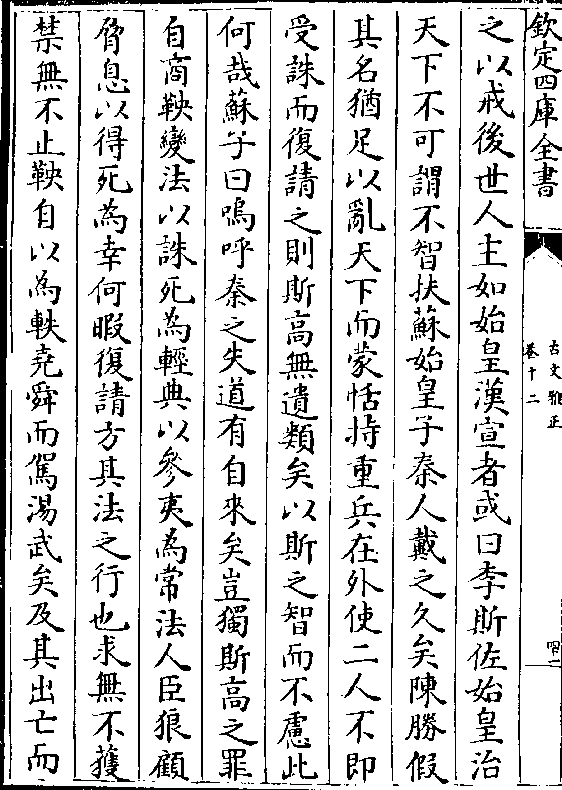 欽定四庫全書
古文雅正
卷十二
四一
之以戒後世人主如始皇漢宣者或曰李斯佐始皇治
天下不可謂不智扶蘇始皇子秦人戴之久矣陳勝假
其名猶足以亂天下而蒙恬持重兵在外使二人不即
受誅而復請之則斯高無遺類矣以斯之智而不慮此
何哉蘇子曰嗚呼秦之失道有自來矣豈獨斯高之罪
自商鞅變法以誅死為輕典以參夷為常法人臣狼顧
脅息以得死為幸何暇復請方其法之行也求無不獲
禁無不止鞅自以為軼堯舜而駕湯武矣及其出亡而